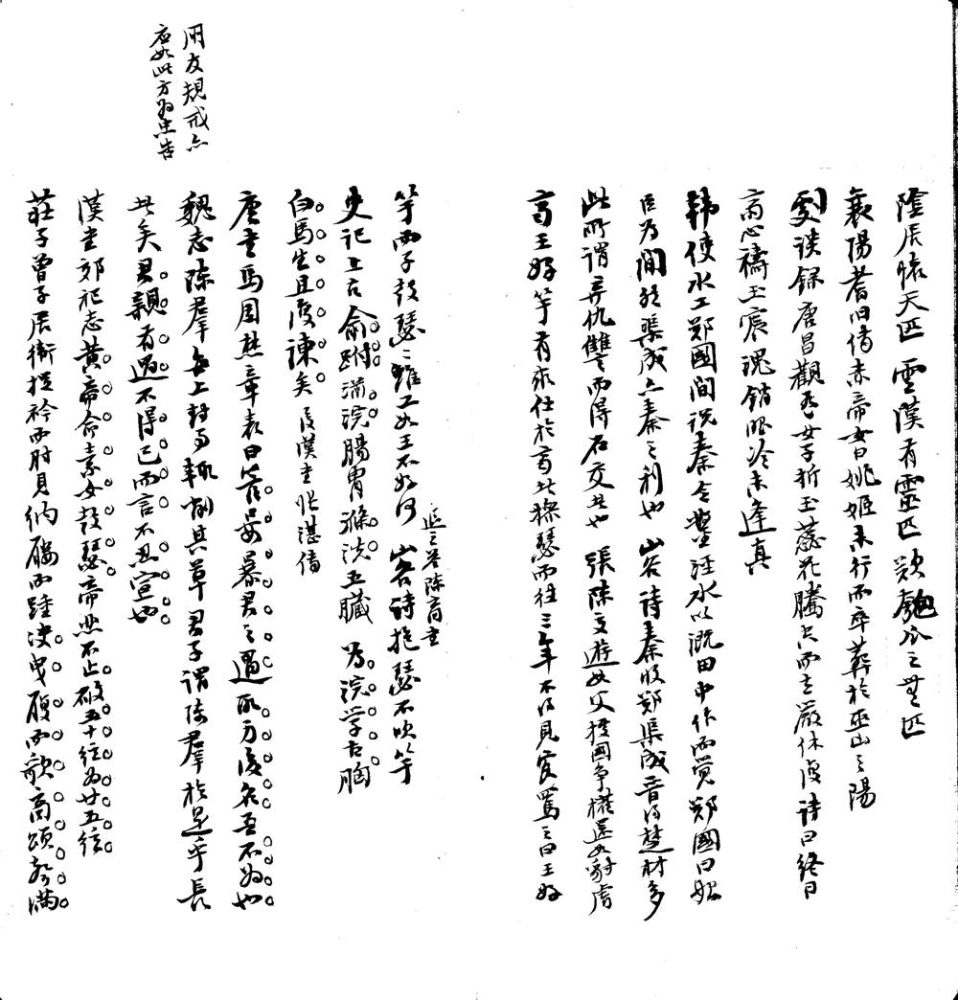 陰辰懷天匹雲漢有靈匹歎匏瓜之無匹
襄陽耆旧傳赤帝女曰姚姬未行而卒葬於巫山之陽
劇談錄唐昌觀有女子折玉蕊花騰空而去嚴休復詩曰終日
齋心禱玉宸魂銷眼冷未逢真
韓使水工鄭國間說秦令鑿涇水以溉田中作而覺鄭國曰始
臣為間然渠成亦秦之利也 山谷詩秦收鄭渠成晉得楚材多
此所謂弃仇讐而得石交者也 張陳交遊如父 攘國爭權還如豺虎
齊王好竽有求仕於齊者操瑟而往三年不得見客罵之曰王好
竽而子鼓瑟瑟雖工如王不好何 山谷詩抱瑟不吹竽
退之答陳商書
史記上古俞跗湔浣腸胃滌洗五臟 為浣學古胸
白馬生且復諫矣 後漢書張湛傳
唐書馬周焚章表曰管晏暴君之過取身後名吾不為也
魏志陳羣每上封事輒削其草君子謂陳羣於是乎長
者矣君親有過不得已而言不忍宣也
漢書郊祀志黃帝命素女鼓瑟帝悲不止破五十絃為廿五絃
莊子曾子居衛捉衿而肘見納屨而踵決曳屣而歌商頌聲滿
朋友規戒亦
應如此方為忠告